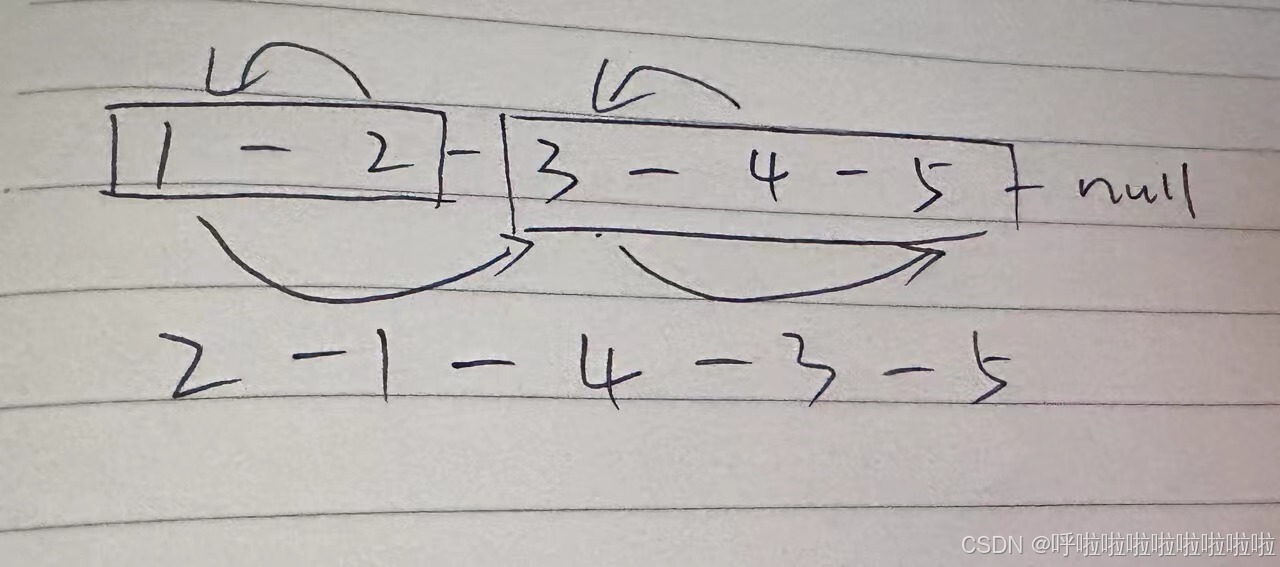 1 - 2 - 3 - 4 - 5 - null
2 - 1 - 4 - 3 - 5
CSDN @呼啦啦啦啦啦啦啦啦